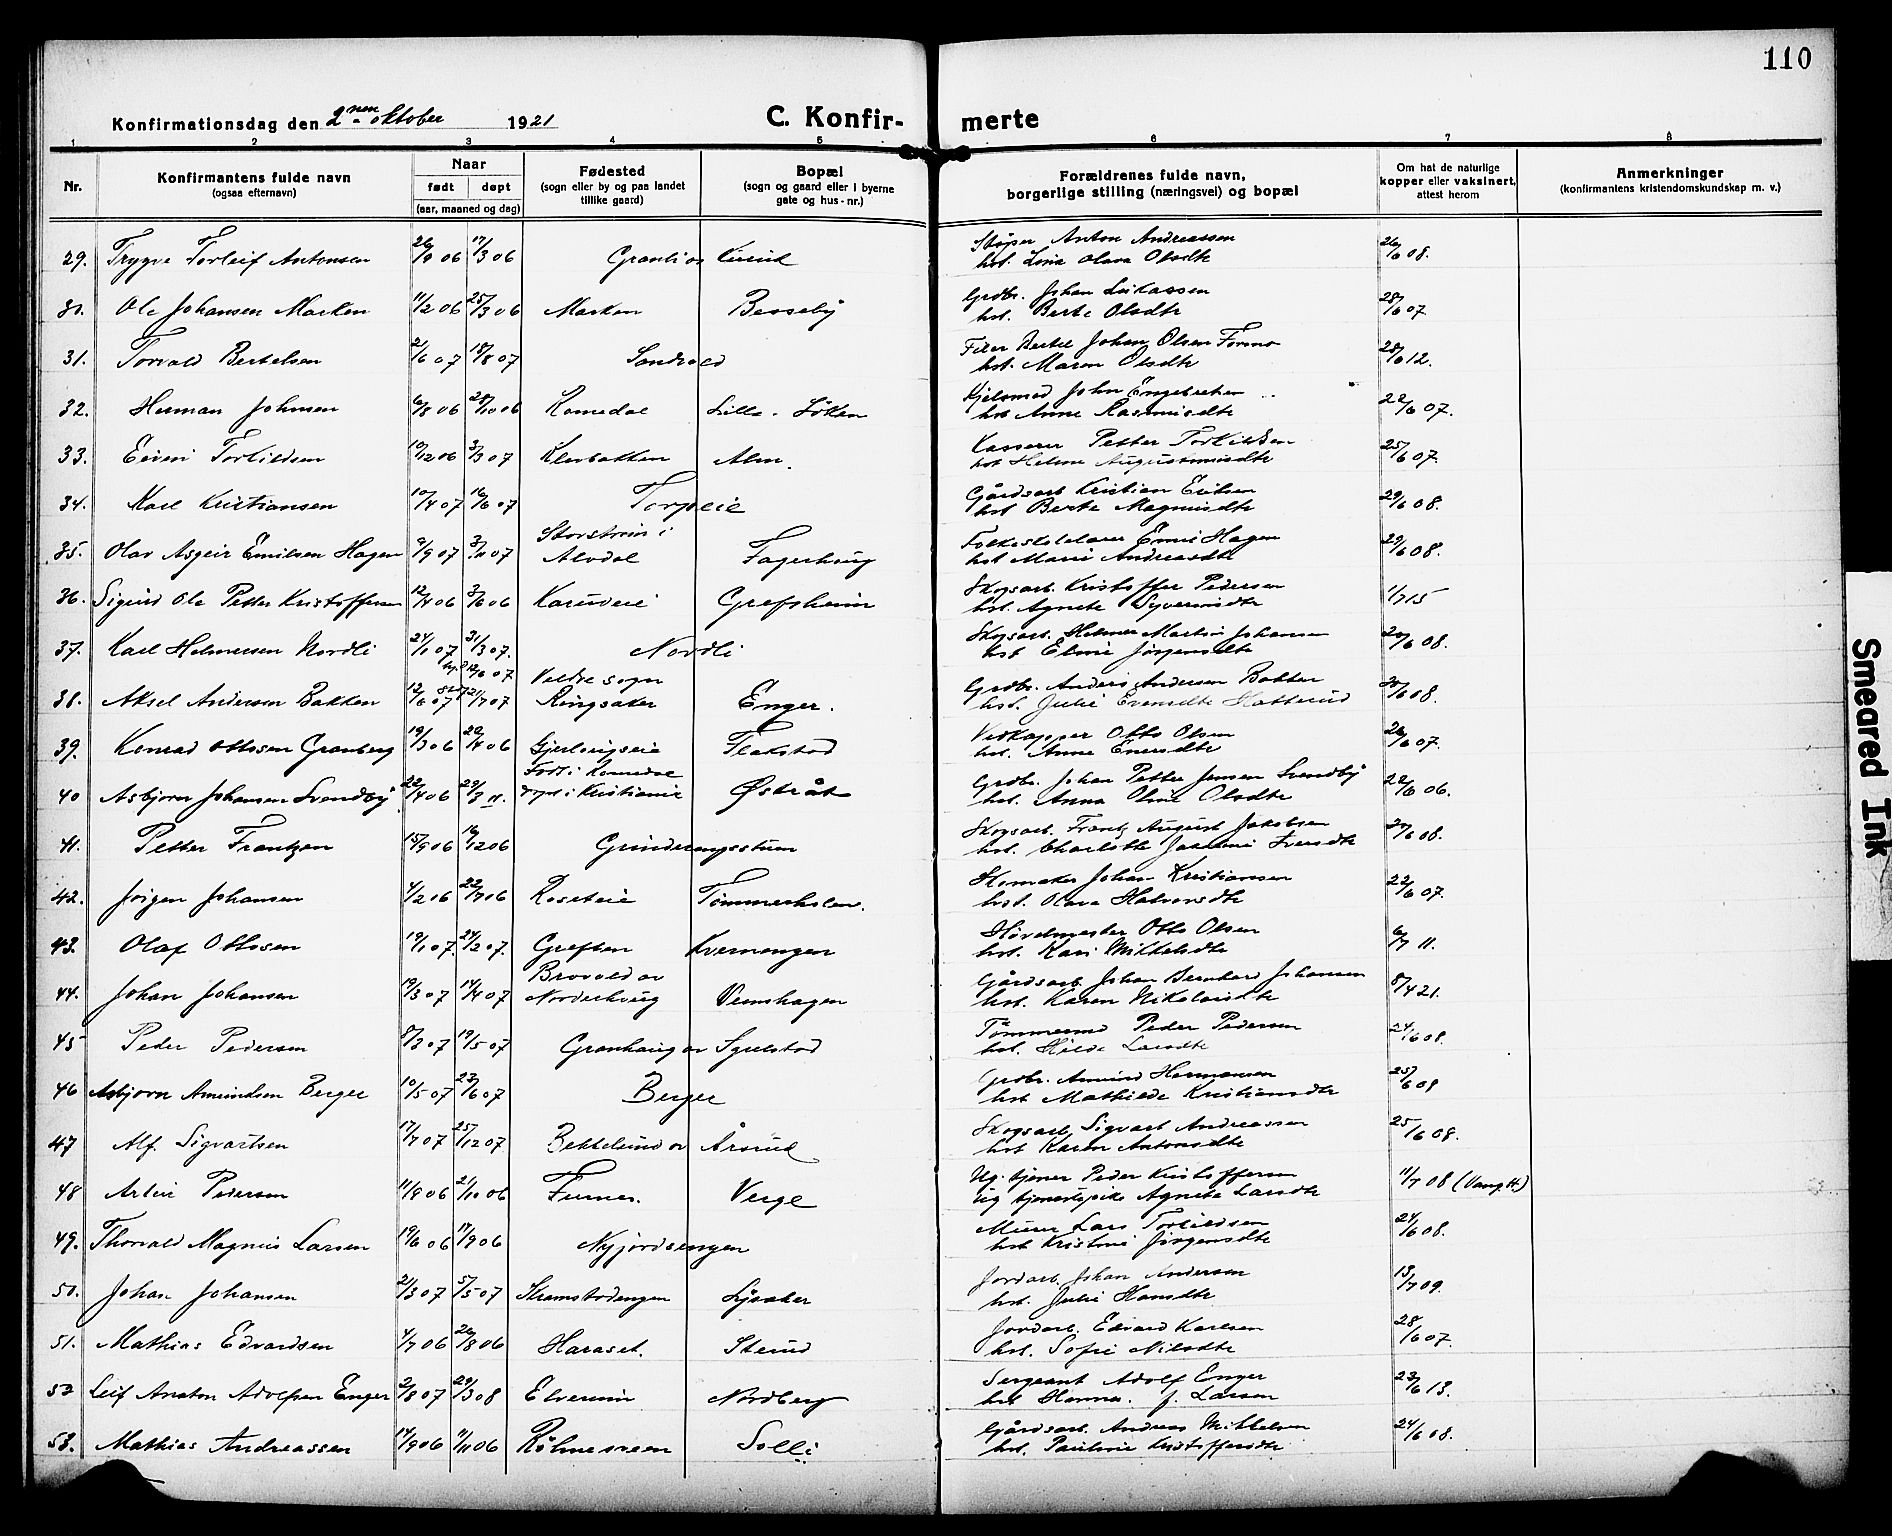 110
Konfirmationsdag den 2nen oktober 1921
C. Konfir- merte
1 2 3 4 5 6 7 8
Nr.
Konfirmantens fulde navn
(ogsaa efternavn)
Naar
født døpt
(aar, maaned og dag)
Fødested
(sogn eller by og paa landet
tillike gaard)
Bopæl
(sogn og gaard eller i byerne
gate og hus-nr.)
Forældrenes fulde navn,
borgerlige stilling (næringsvei) og bopæl
Om hat de naturlige
kopper eller vaksinert,
attest herom
Anmerkninger
(konfirmantens kristendomskundskap m. v.)
29. Trygve Torleif Antonsen 26/9 06 17/3 06 Støper Anton Andreassen 26/6 08.
hst. Olava Olsdtr
30. Ole Johansen Marken 11/2 06 25/3 06 Marken Besseby Grdbr. Johan Lukassen 28/6 07
hst. Berte Olsdtr
31. Torvald Bertelsen 21/6 07 18/8 07 Sandvold Bertel Johan Olsen Formo 28/6 12.
hst. Maren Olsdtr
32. Herman Johnsen 6/8 06 28/10 06 Romedal Lille-Løken Hjelpmed John Engebretsen 22/6 07.
hst Anne Rasmusdtr
33. Torkildsen 10/12 06 3/3 07 Klevbakken Alm. Kasserer Petter Torkildsen 25/6 07.
hst Helene Augustinusdtr
34. Karl Kristiansen 10/4 07 16/6 07 Torpeie Gårdsarb Kristian Eriksen 29/6 08.
hst Berte Magnusdtr
35. Olav Asgeir Emilsen Hagen 9/9 07 3/11 07 Alvdal Fagerhaug Folkeskolelærer Emil Hagen 29/6 08.
hst Marie Andreasdtr
36. Sigurd Ole Petter Kristoffersen 12/4 06 3/6 06 Karudeie Grefsheim Skogsarb. Kristoffer Pedersen 1/7 15
hst. Agnete Syverinsdtr
37. Karl Helmersen Nordli 24/1 07 31/3 07. Nordli Skogsarb. Helmer Martin Johansen 20/6 08.
hst Eline Jørgensdtr
38. Aksel Andersen Bakken 12/6 07 21/7 07 Veldre sogn
Ringsaker Enger. Grdbr. Anders Andersen Bakken 30/6 08.
hst. Julie Evensdtr Hatterud
39. Konrad Ottosen Granberg 19/3 06 22/4 06 Gjerlaugseie Flakstad Vedkapper Otto Olsen 26/6 07.
hst. Anne Enersdtr
40 Asbjørn Johansen Svendby 22/4 06 29/3 11. Født i Romedal
døpt i Kristiania Østråt Grdbr. Johan Petter Jensen Svendby 22/6 06.
hst. Anna Oline Olsdtr
41. Petter Frantzen 15/9 06 16/12 06 Grinderengsstuen Skogsarb. Frantz August Jakobsen 27/6 08.
hst. Charlotte Josefine Iversdtr
42. Jørgen Johansen 4/2 06 22/7 06 Roseteie Tømmerholen. Skomaker Johan Kristiansen 22/6 07.
hst. Olava Halvorsdtr
43. Olaf Ottosen 19/1 07. 24/2 07. Greften Kvernengen Høvelmester Otto Olsen 6/7 11.
hst. Kari Mikkelsdtr
44. Johan Johansen 19/3 07 14/4 07 Brovold av
Norderhaug Vemshagen Gårdsarb. Johan Bernhard Johansen 8/4 21.
hst. Karen Nikolaidtr
45 Peder Pedersen 8/3 07 19/5 07 Granhaug av Sælstad Tømmermd Peder Pedersen 24/6 08.
hst. Hilde Larsdtr
46 Asbjørn Amundsen Berger 10/5 07 23/6 07 Berger Grdbr. Amund Hermansen 25/6 09
hst Mathilde Kristiansdtr
47 Alf Sigvartsen 17/7 07 25/12 07 Bekkelund av Årsrud Skogsarb. Sigvart Andreassen 25/6 09.
hst Karen Antonsdtr
48 Pedersen 11/8 06 21/10 06 Furnes. Verge Ug. tjener Peder Kristoffersen 11/7 08 (Vang H.)
ug tjenestepike Agnete Larsdtr
49. Thorvald Magnus Larsen 19/6 06 17/9 06 Nyjordsengen Murer Lars Torkildsen 24/6 08.
hst Kristine Jørgensdtr
50. Johan Johansen 2/3 07 5/5 07 Skramstadengen Lysaker Jordarb. Johan Andersen 13/7 09.
hst. Julie Hansdtr
51. Mathias Edvardsen 4/7 06 26/8 06 Haraset. Sterud Jordarb. Edvard Karlsen 28/6 07.
hst. Sofie Nilsdtr
52 Leif Anston Adolfsen Enger 2/8 07 29/3 08 Elverum Nordberg Sergeant Adolf Enger 23/6 13.
hst Hanna f. Larsen
53. Mathias Andreassen 14/9 06 11/11 06 Røhnesveen Solli Gårdsarb. Andreas Mikkelsen 24/6 08.
hst. Pauline Kristoffersdtr
Smeared Ink